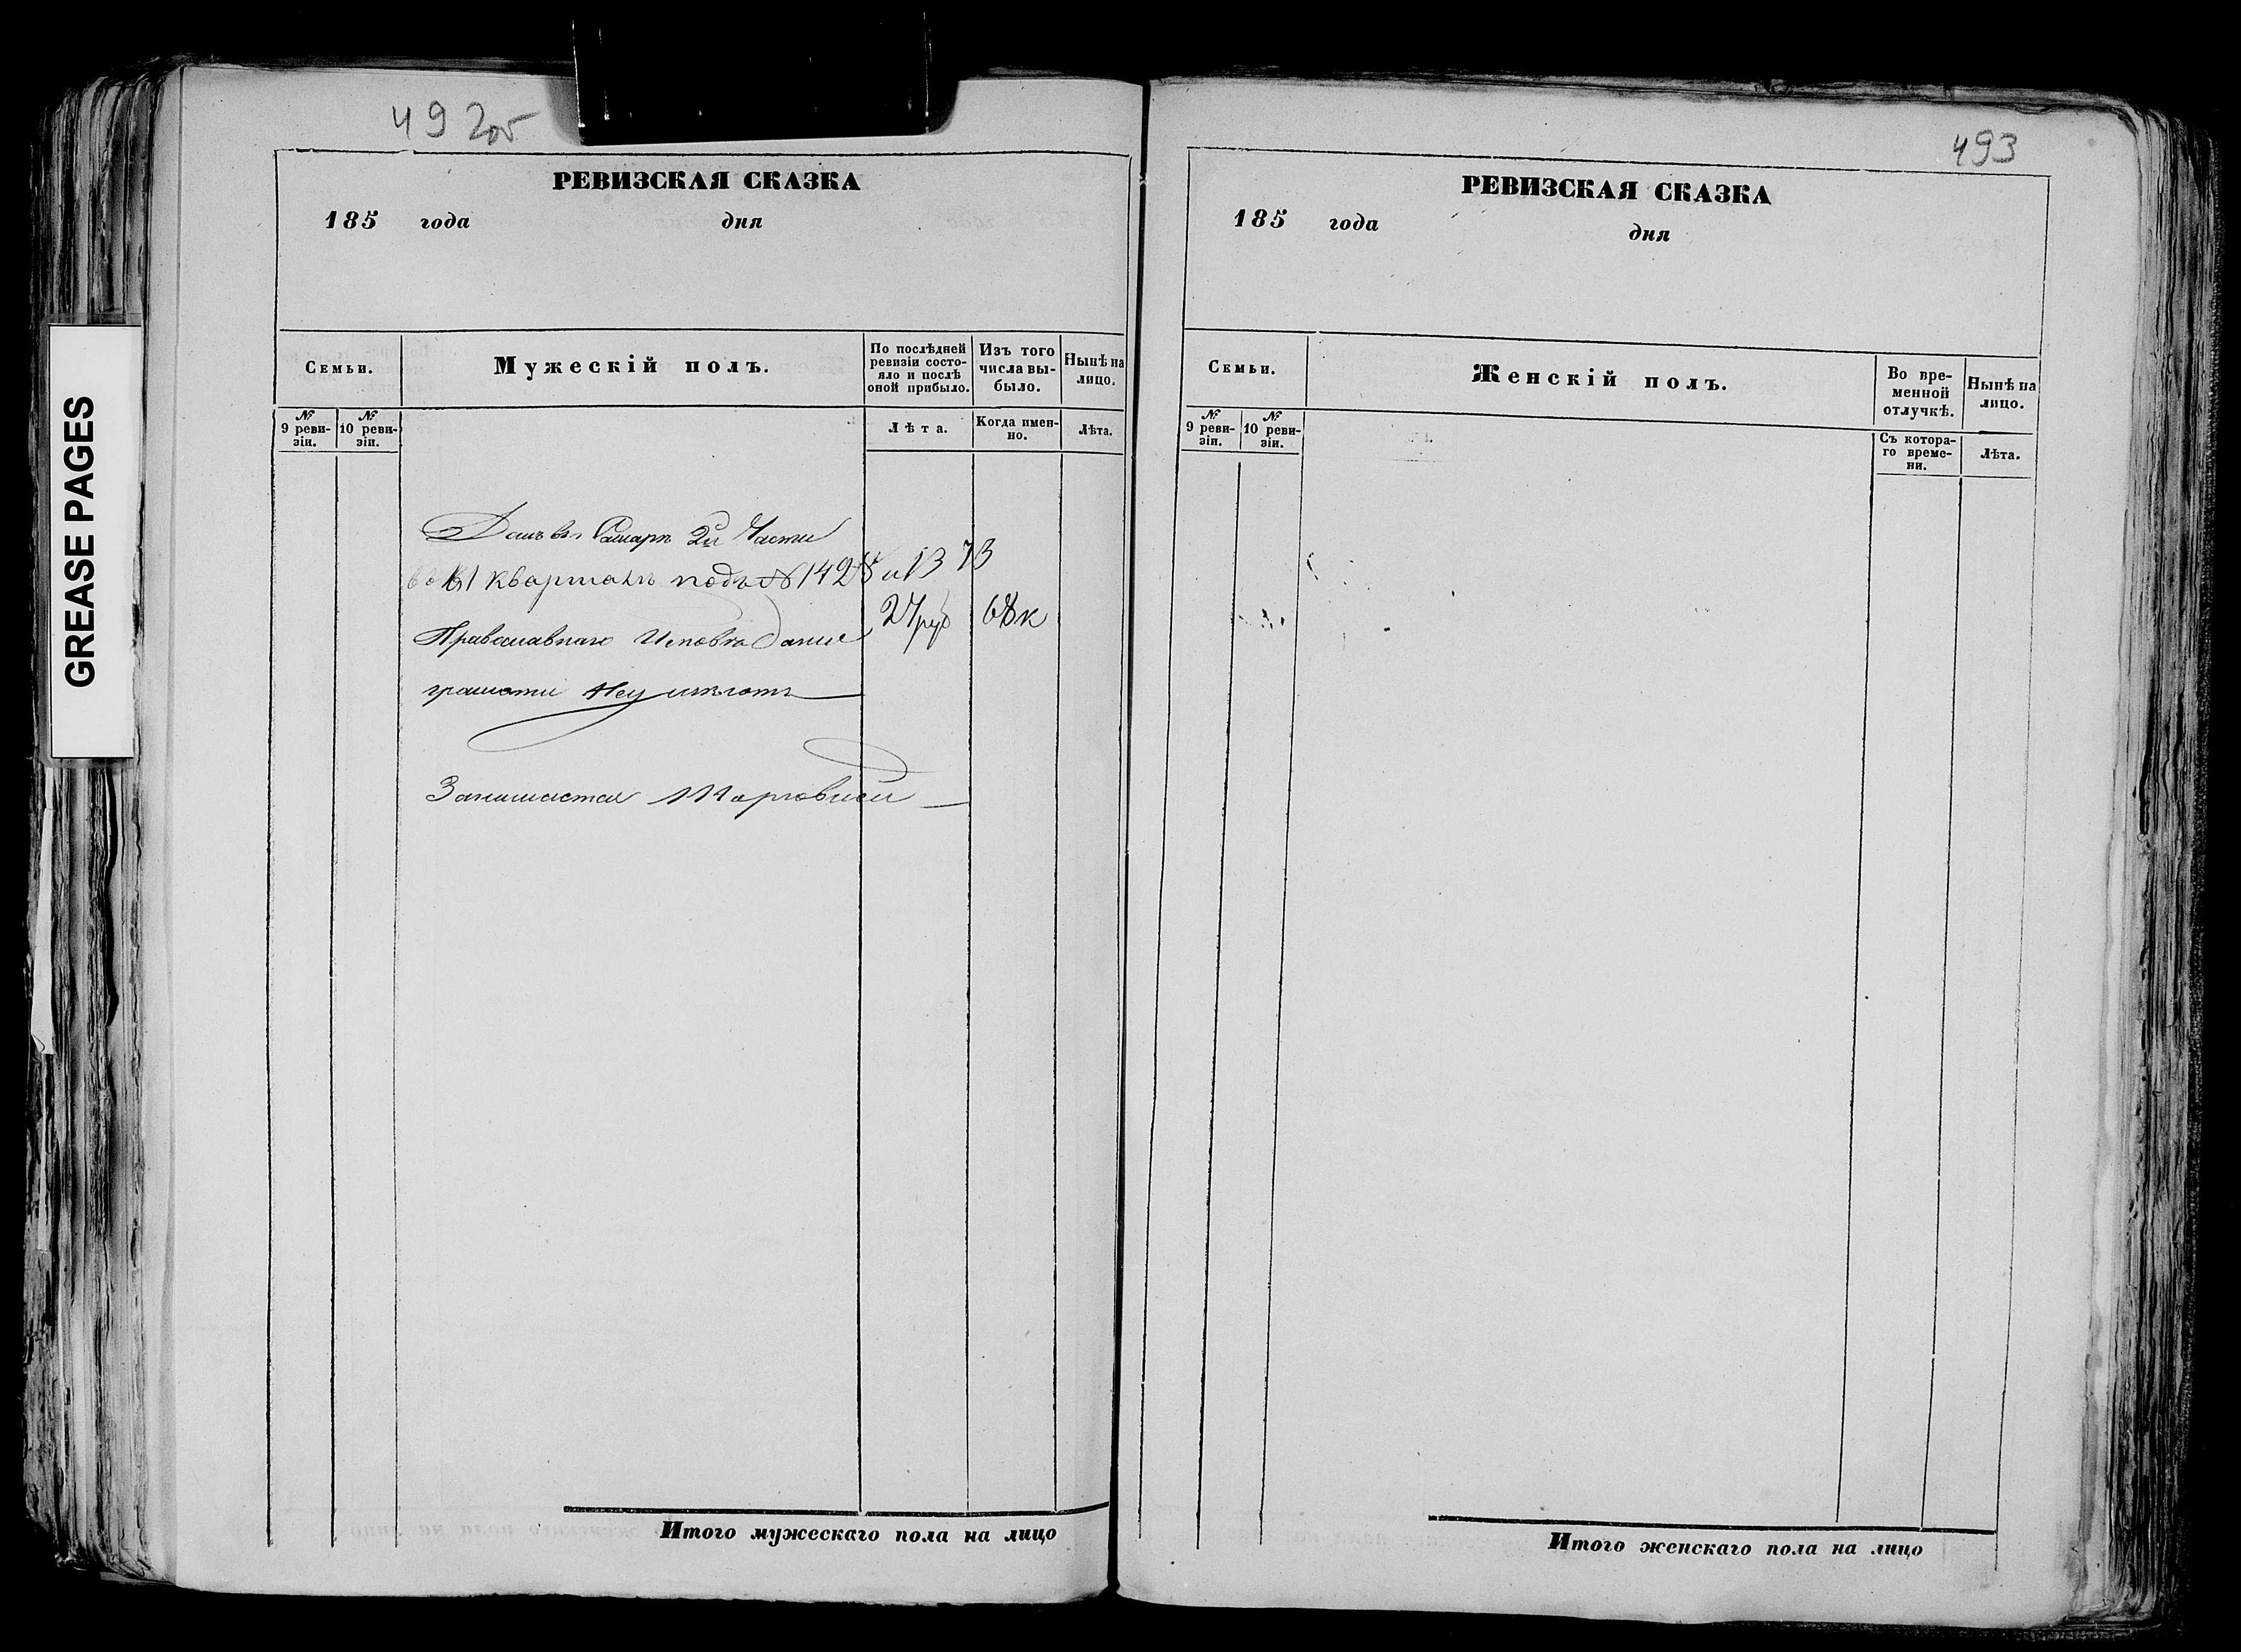 GREASE PAGES
492об
РЕВИЗСКАЯ СКАЗКА
185 года дня
Семьи.
Мужескій полъ.
По послѣдней ревизіи состо-
яло и послѣ
оной прибыло.
Изъ того
числа вы-
было.
Нынѣ на
лицо.
№
9 реви-
зіи.
№
10 реви-
зіи.
Лѣта.
Когда имен-
но.
Лѣта.
Домъ въ Самарѣ 2й Части
во 61 кварталѣ подъ № 1428 и 1373
27 руб 68 к
Православнаго Исповѣданія
грамоти Неумѣютъ
Занимается Торговлей
Итого мужескаго пола на лицо
493
РЕВИЗСКАЯ СКАЗКА
185 года дня
Семьи.
Женскій полъ.
Во вре-
менной
отлучкѣ.
Нынѣ на
лицо.
№
9 реви-
зіи.
№
10 реви-
зіи.
Съ котора-
го време-
ни.
Лѣта.
Итого женскаго пола на лицо